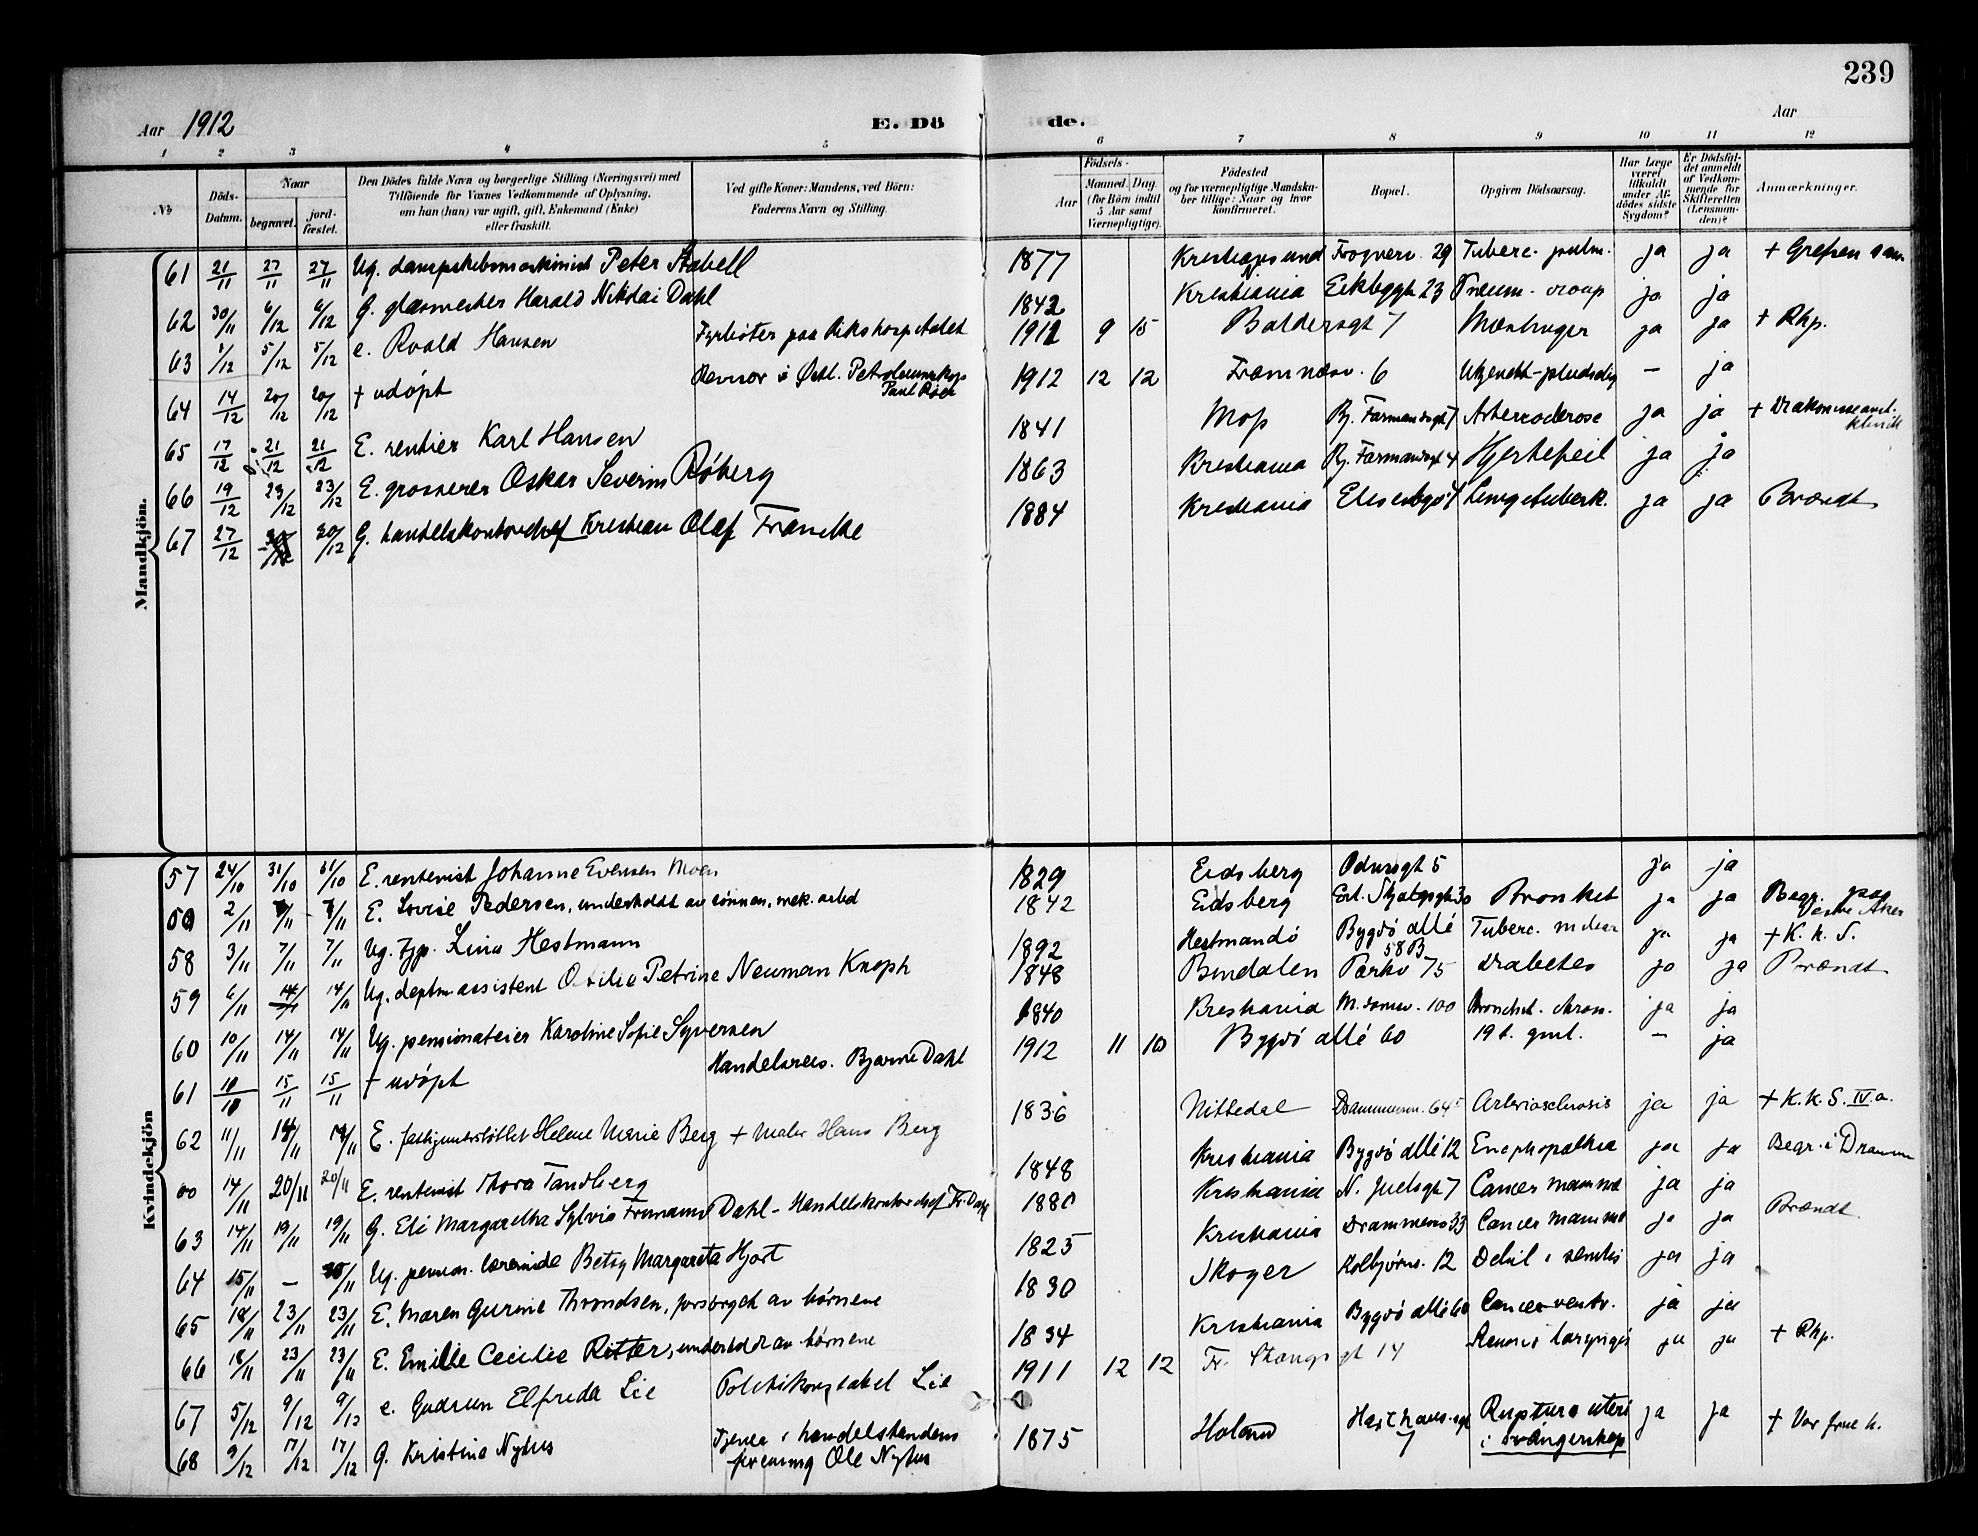 239
Aar 1912 E. Dö de. Aar
1 2 3 4 5 6 7 8 9 10 11 12
No. Döds-Datum. Naar begravet. jord-fæstet. Den Dödes fulde Navn og borgerlige Stilling (Næringsvei) med Tilföiende for Voxnes Vedkommende af Oplysning, om han (hun) var ugift, gift, Enkemand (Enke) eller fraskilt. Ved gifte Koner: Mandens, ved Börn: Faderens Navn og Stilling. Födsels- Aar Maaned. Dag. (for Börn indtil 5 Aar samt Værnepligtige). Födested og for værnepligtige Mandskaber tillige: Naar og hvor konfirmeret. Bopæl. Opgiven Dödsaarsag. Har Læge været tilkaldt under Afdödes sidste Sygdom? Er Dödsfaldet anmeldt af Vedkommende for Skifteretten (Lensmanden)? Anmærkninger.
Mandkjön.
61 21/11 27/11 27/11 Ug. dampskibsmaskinist Peter Stabell 1877 Kristiansund Frognerv. 29 Tuberc. pulm. ja ja + Grefsen san
62 30/11 6/12 6/12 G. glasmester Harald Nikolai Dahl 1842 Kristiania Eckbggt 23 Pneum. croup ja ja
63 1/12 5/12 5/12 e. Roald Hansen Fyrbøter paa Rikshospitalet 1912 9 15 Baldersgt 7 Mæslinger ja ja + Rhp.
64 14/12 20/12 20/12 + udöpt Revisor i Østl. Petroleumskop Paul Röed 1912 12 12 Framnæsv. 6 – ja
65 17/12 21/12 21/12 E. rentier Karl Hansen 1841 Moss Bj. Farmandsgt 7 ja ja +
66 19/12 23/12 23/12 E. grosserer Oskar Severin Röberg 1863 Kristiania Bj. Farmandsgt 4 Hjertefeil ja ja
67 27/12 30/12 G. handelskontorchef Kristian Olaf Francke 1884 Kristiania Lungetuberk. ja ja Brændt
Kvindekjön
57 24/10 31/10 31/10 E. rentenist Johanne Evensen Moen 1829 Eidsberg Odinsgt 5 ja ja
2/11 7/11 7/11 E. Lovise Pedersen, underholdt av sönnen, mek. arbed 1842 Eidsberg Erl. Skjalgsgt 30 Bronkit ja ja Begr. paa Vestre Aker
58 3/11 7/11 7/11 Ug. Tjp. Lina Hestmann 1892 Hestmandö Bygdö allé 58B Tuberc. ja ja + K. k. S.
59 6/11 14/11 14/11 Ug. deptm.assistent Otilie Petrine Neuman Knoph 1848 Bindalen Parkv 75 Diabetes ja ja Brændt
60 10/11 14/11 14/11 Ug. pensionateier Karoline Sofie Syversen 1840 Kristiania 100 Bronchit. chron. ja ja
61 10/10 15/11 15/11 + udöpt Handelsreis. Bjarne Dahl 1912 11 10 Bygdö allé 60 19 t. gml. – ja
62 11/11 14/11 14/11 E. fattigunderstöttet Helene Marie Berg + Maler Hans Berg 1836 Nittedal Drammensv. 64 Arteriosclerosis ja ja + K. K. S. IV a.
00 14/11 20/11 20/11 E. rentenist Thora Tandberg 1848 Kristiania Bygdö allé 12 ja ja Begr. i Dramm
63 14/11 19/11 19/11 G. Eli Margaretha Sylvia Frimann Dahl – Handelskontorchef Fr. Dahl 1880 Kristiania N. Juelsgt 7 Cancer mammæ ja ja
64 15/11 – Ug. pension. lærerinde Betsy Margareta Hjort 1825 Kristiania Drammensv 33 Cancer mammæ ja ja Brændt
65 18/11 23/11 23/11 E. Maren Gurine Throndsen, forsörget av börnene 1830 Skoger Kolbjörns. 12 Debil. senilis ja ja
66 18/11 23/11 23/11 E. Emilie Cecilie Ritter, underholdt av börnene 1834 Kristiania Bygdö allé 60 Cancer ventr. ja ja
67 5/12 9/12 9/12 e. Gudrun Elfrida Lie Politikonstabel Lie 1911 12 12 Fr. Stangs gt 14 Stenosis laryngis ja ja + Rhp.
68 9/12 17/12 17/12 G. Kristina Nyhus Tjener i handelstandens forening Ole Nyhus 1875 Holand 7 Ruptura uteri i svangerskap ja ja + Vor frue h.